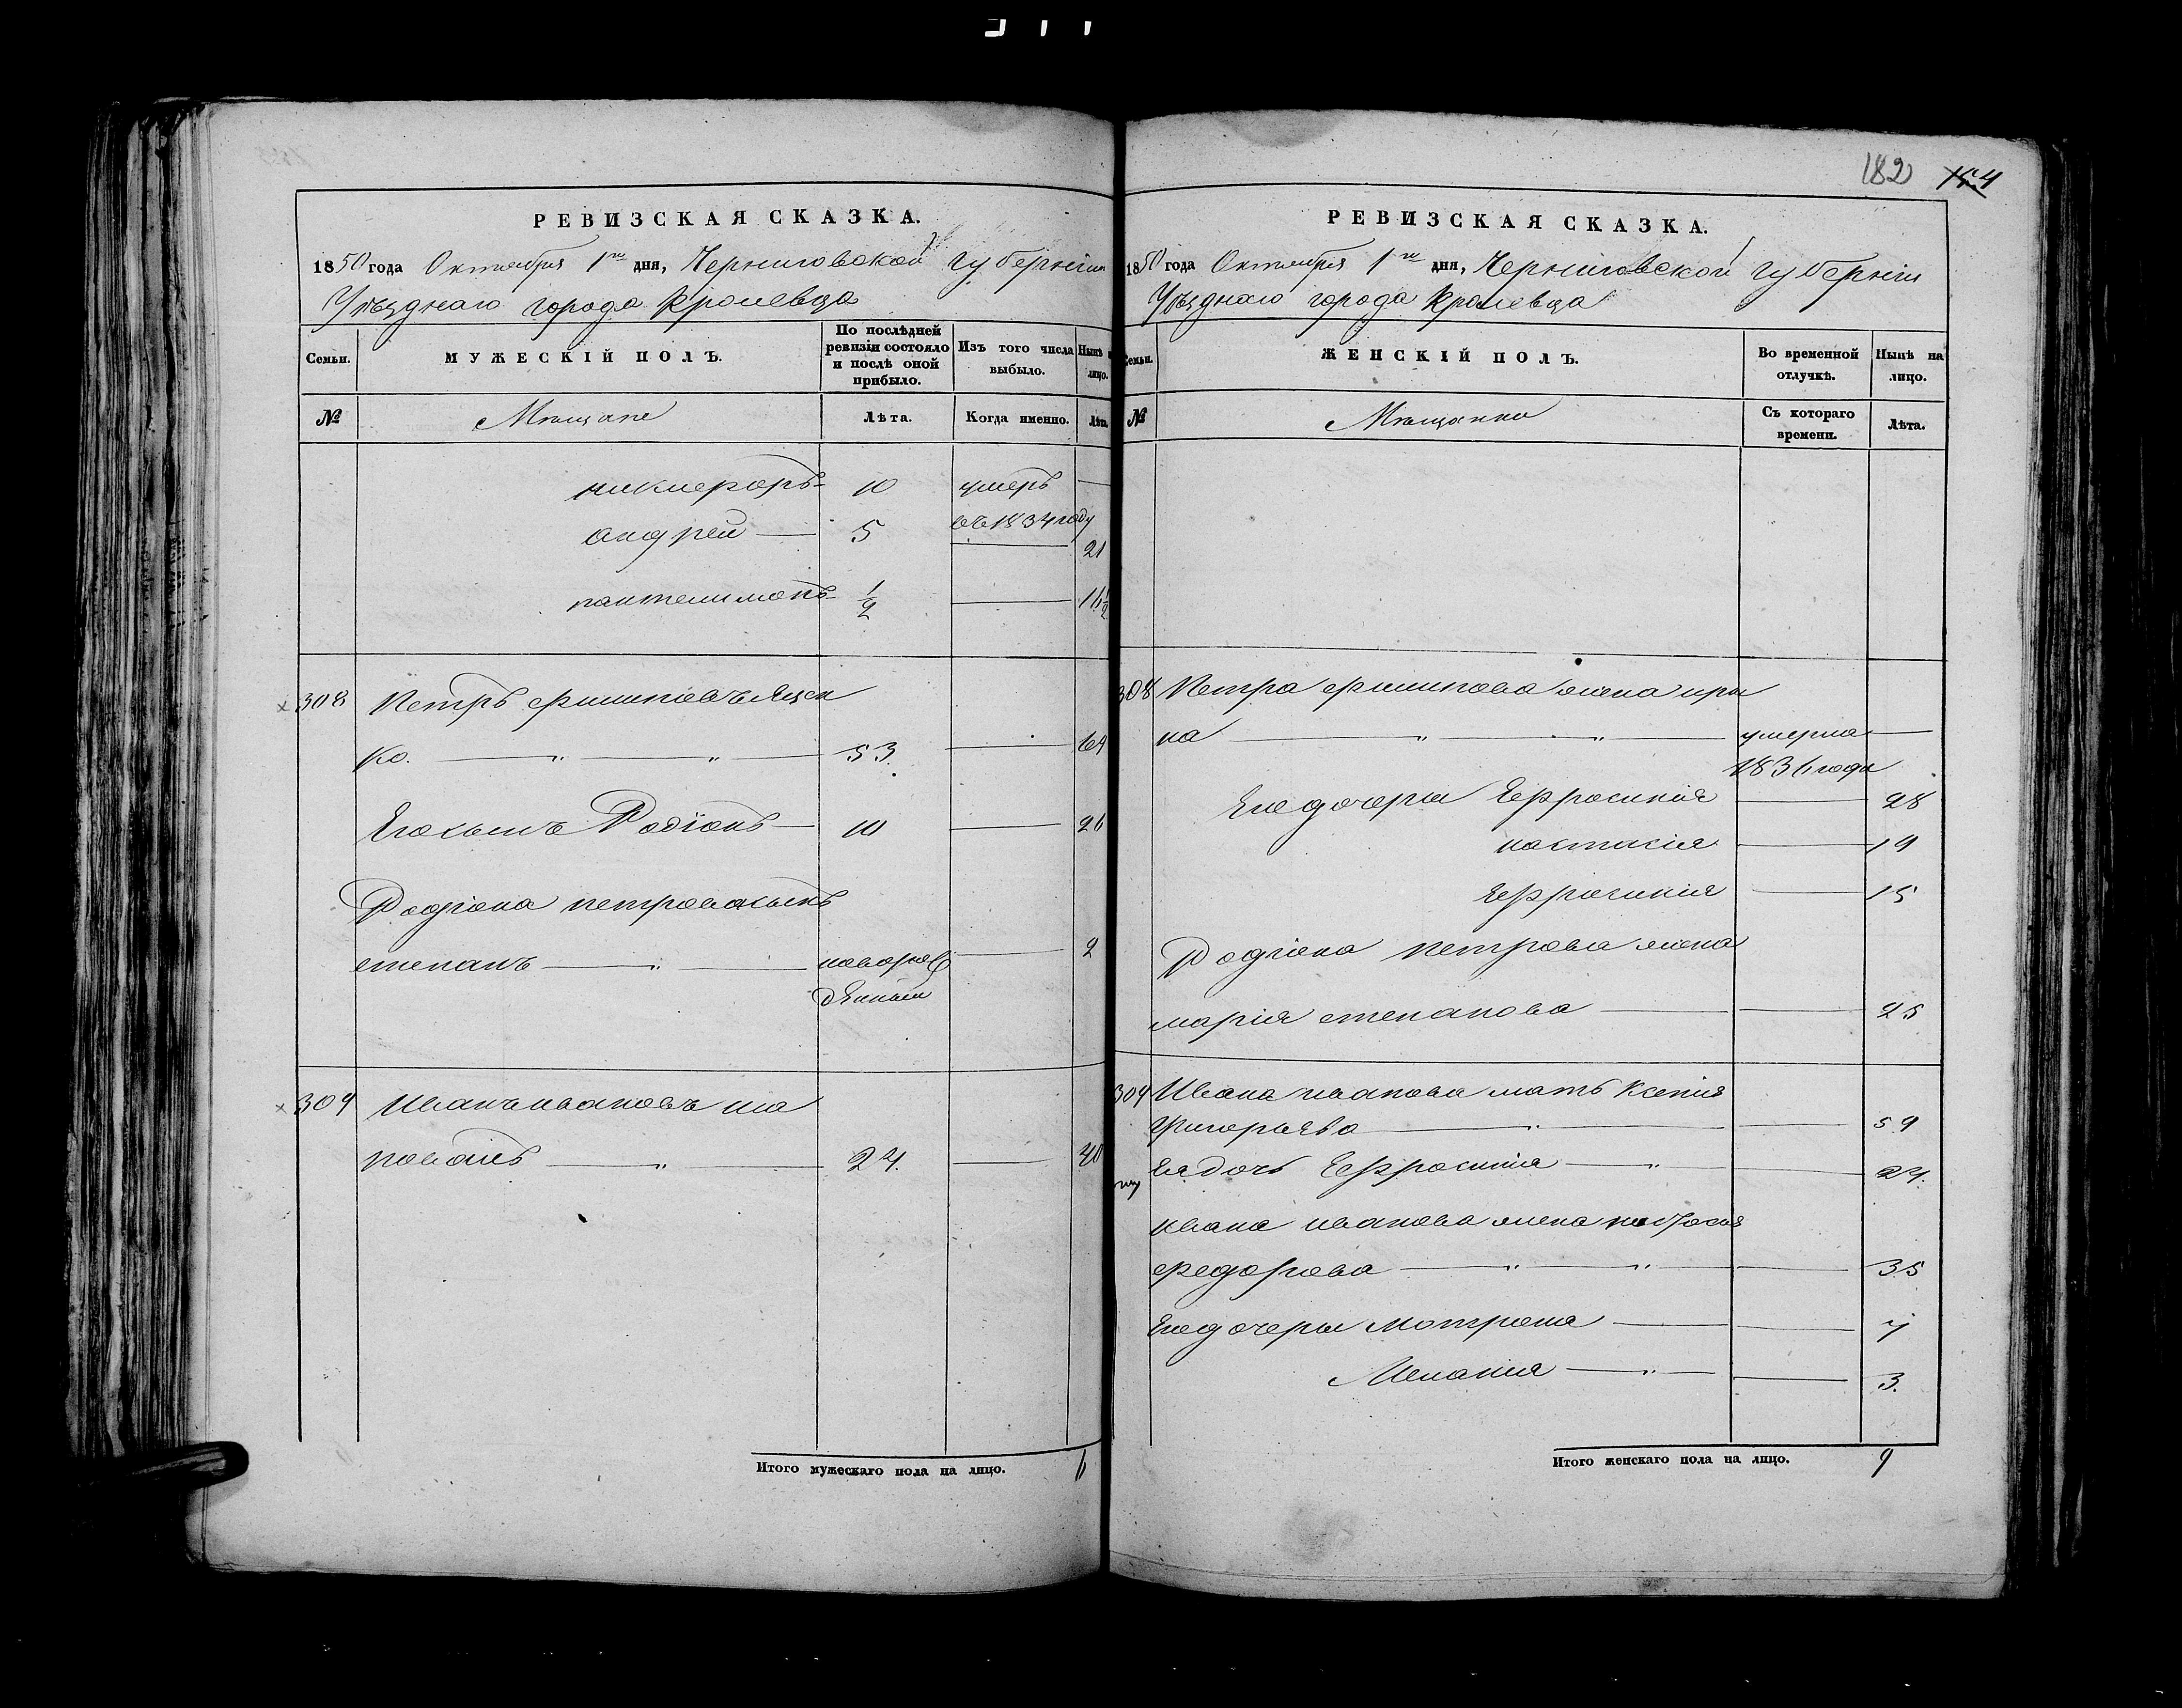 РЕВИЗСКАЯ СКАЗКА.
1850 года Октября 1го дня, Черниговской губернiи
Уѣзднаго города Кролевца
Семьи.
МУЖЕСКІЙ ПОЛЪ.
По послѣдней ревизіи состояло и послѣ оной прибыло.
Изъ того числа выбыло.
Нынѣ на лицо.
№
Мѣщане
Лѣта.
Когда именно.
Лѣта.
никифоръ 10 умеръ
въ 1834 году
андрей 5 21
пантелимонъ ½ 16½
308 Петръ филиповъ Яцен
ко. 53. 69
Его сынъ Родіонъ 10 26
Родіона петрова сынъ
степанъ новорож 2
денный
309 Иванъ ивановъ ша
24. 40
Итого мужескаго пола на лицо. 6
182 154
РЕВИЗСКАЯ СКАЗКА.
1850 года Октября 1го дня, Черниговской губерніи
Уѣзднаго города Кролевца
Семьи.
ЖЕНСКІЙ ПОЛЪ.
Во временной отлучкѣ.
Нынѣ на лицо.
№
Мѣщанки
Съ котораго времени.
Лѣта.
308 Петра филипова жена ири
на умерла
1836 года
Его дочери Ефросинія 28
настасія 19
Ефросинія 15
Родіона петрова жена
марія степанова 25
309 Ивана иванова мать Ксенія
Григорьева 59
Ея дочь Ефросинія 24.
ивана иванова жена
федорова 35
Его дочери мотрона 7
Меланія 3.
Итого женскаго пола на лицо. 9